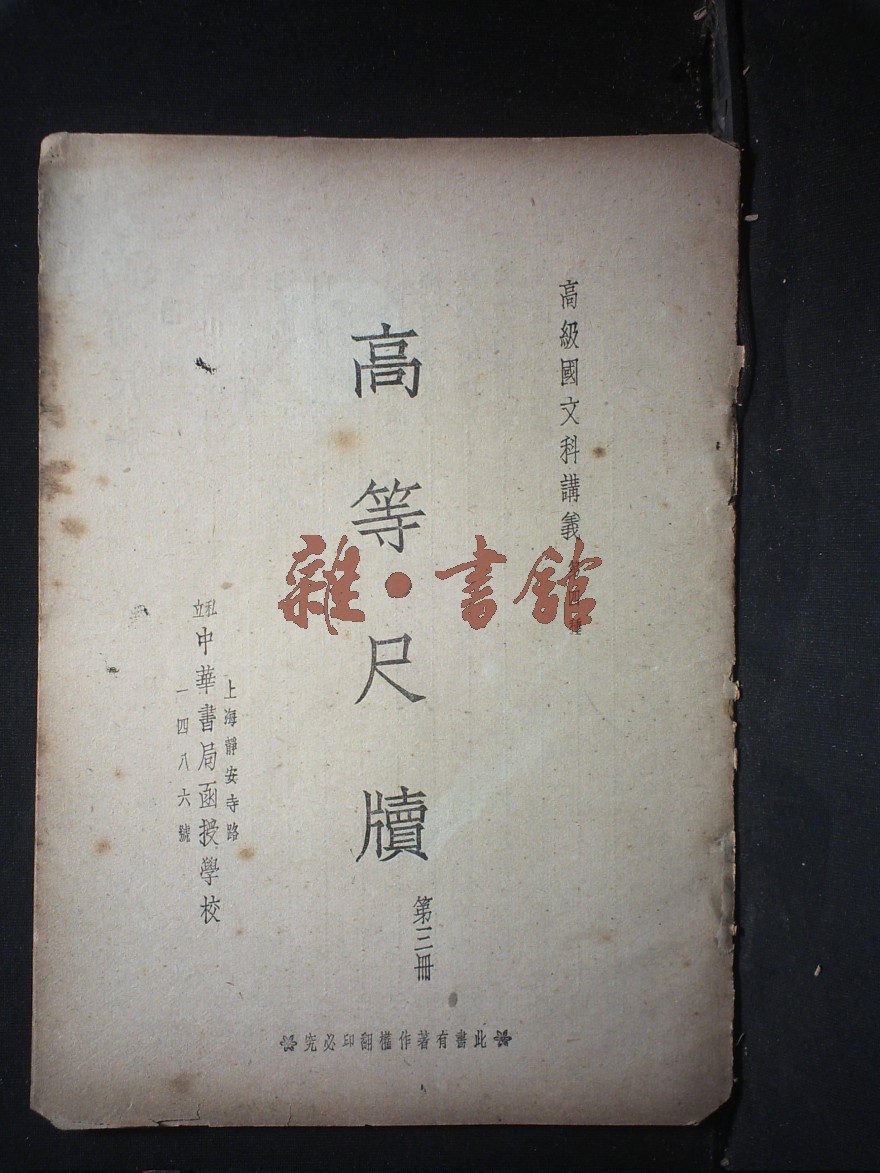 高級國文科講義 第四種
高等尺牘
第三冊
上海靜安寺路
私立中華書局函授學校
一四八六號
此書有著作權翻印必究
雜·書館